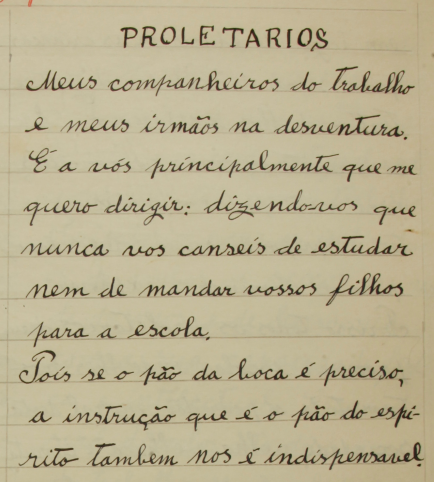 PROLETARIOS
Meus companheiros do trabalho
e meus irmãos na desventura.
É a vós principalmente que me
quero dirigir: dizendo-vos que
nunca vos canseis de estudar
nem de mandar vossos filhos
para a escola.
Pois se o pão da boca é preciso,
a instrução que é o pão do espi-
rito tambem nos é indispensavel.